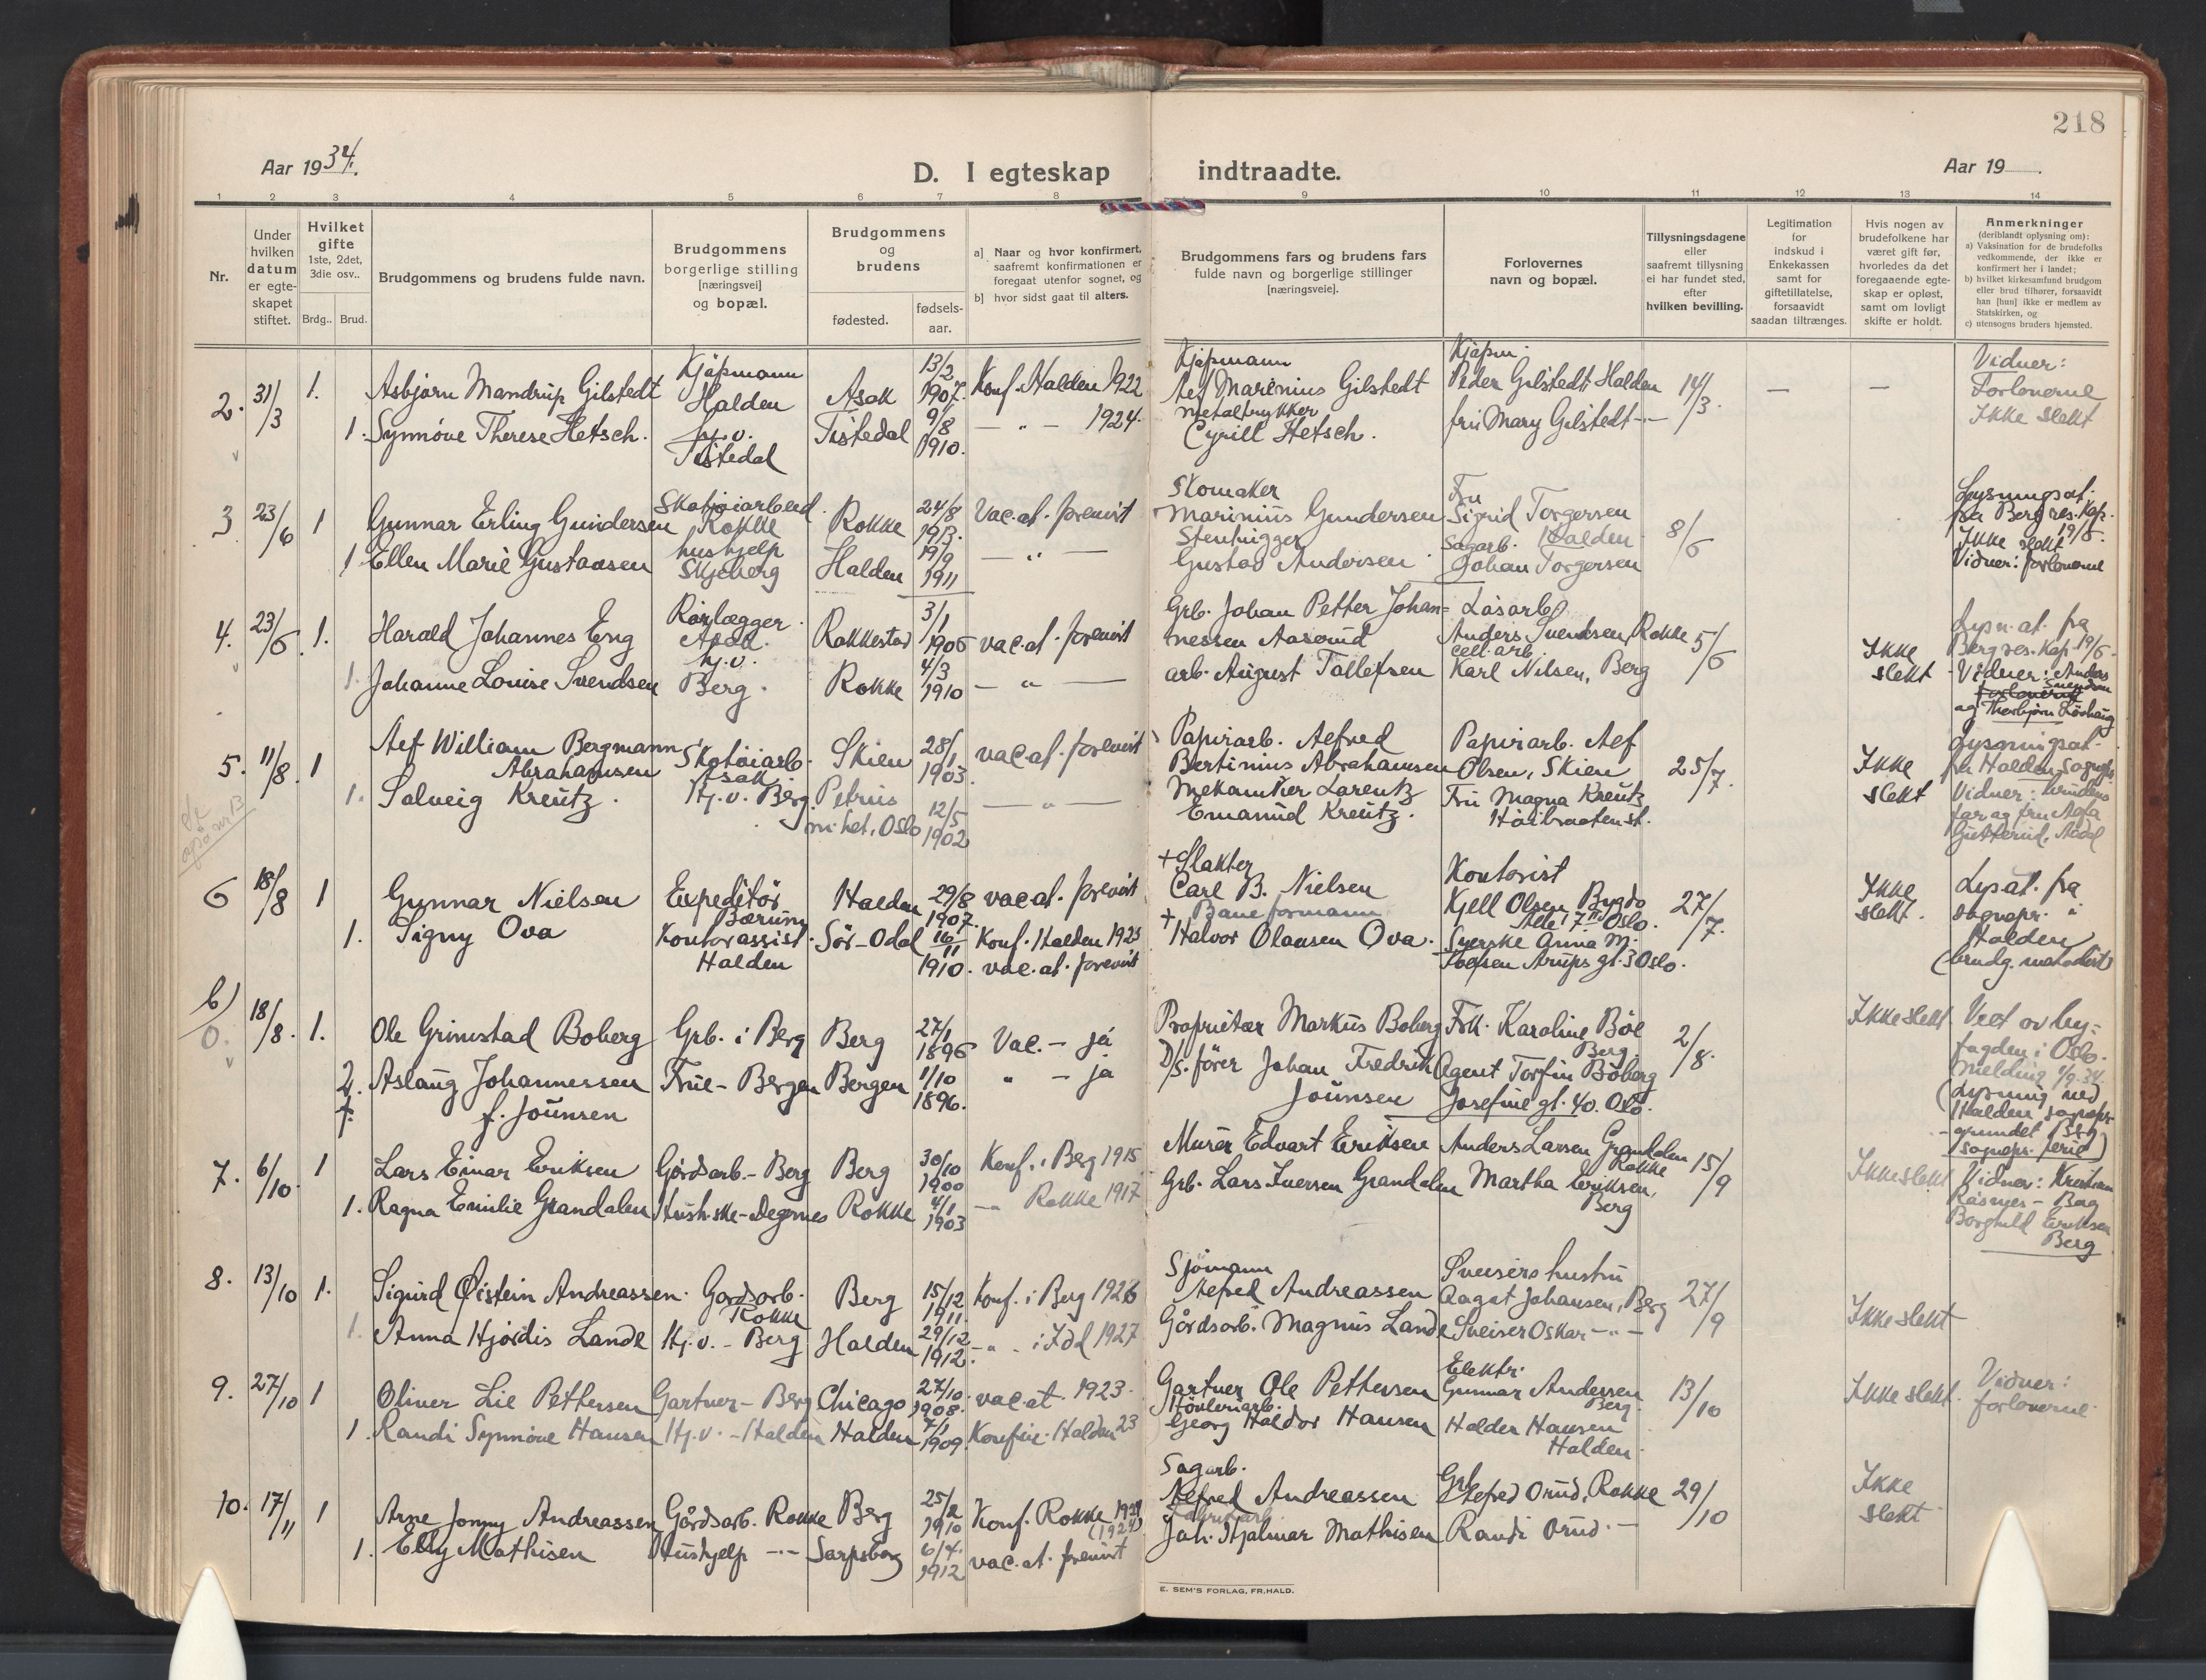 218
Aar 1934.
D. I egteskap indtraadte.
Aar 19
1 2 3 4 5 6 7 8 9 10 11 12 13 14
Nr.
Under hvilken datum er egteskapet stiftet.
Hvilket gifte 1ste, 2det, 3die osv..
Brdg.. Brud.
Brudgommens og brudens fulde navn.
Brudgommens borgerlige stilling [næringsvei] og bopæl.
Brudgommens og brudens
fødested.
fødsels-aar.
a] Naar og hvor konfirmert, saafremt konfirmationen er foregaat utenfor sognet, og
b] hvor sidst gaat til alters.
Brudgommens fars og brudens fars fulde navn og borgerlige stillinger [næringsveie].
Forlovernes navn og bopæl.
Tillysningsdagene eller saafremt tillysning ei har fundet sted, efter hvilken bevilling.
Legitimation for indskud i Enkekassen samt for giftetillatelse, forsaavidt saadan tiltrænges.
Hvis nogen av brudefolkene har været gift før, hvorledes da det foregaaende egteskap er opløst, samt om lovligt skifte er holdt.
Anmerkninger (deriblandt oplysning om):
a) Vaksination for de brudefolks vedkommende, der ikke er konfirmert her i landet;
b) hvilket kirkesamfund brudgom eller brud tilhører, forsaavidt han [hun] ikke er medlem av Statskirken, og
c) utensogns bruders hjemsted.
2. 31/3 1. Asbjørn Mandrup Gilstedt Kjøpmann Halden Asak 13/2 1907. Konf. Halden 1922 Kjøpmann Alf Marinius Gilstedt Kjøpm. Peder Gilstedt Halden 14/3. — — Vidner: Forloverne Ikke slekt
1. Synnøve Therese Hetsch. hj.v. Tistedal Tistedal 9/8 1910. — " — 1924. Metaltrykker Cyrill Hetsch. fru Mary Gilstedt - —
3 23/6 1 Gunnar Erling Gundersen Skotøiarbeid. Rokke Rokke 24/8 1913. Vac.at. forevist Skomaker Marinius Gundersen Fru Sigrid Torgersen Halden 8/6 Lysningsat. fra Berg res. kap. 19/6. Ikke slekt Vidner: forloverne
1 Ellen Marie Gustavsen hushjelp Skjeberg Halden 19/9 1911 — " — Stenhugger Gustav Andersen. Sagarb. Johan Torgersen
4. 23/6. 1. Harald Johannes Eng Rørlægger. Asak. Rakkestad 3/1 1906 vac.at. forevist Grb. Johan Petter Johannessen Aaserud Låsarb. Anders Svendsen, Rokke 5/6 Ikke slekt Lysn.at. fra Berg res. kap. 19/6. Vidner: Anders Svendsen forloverne og Thorbjørn Løvhaug
1. Johanne Louise Svendsen hj.v. Berg. Rokke 4/3 1910 — " — arb. August Tollefsen cell.arb. Karl Nilsen, Berg
5. 11/8. 1 Alf William Bergmann Abrahamsen Skotøiarb. Asak. Skien 28/1 1903. vac.at. forevist Papirarb. Alfred Bertinius Abrahamsen Papirarb. Alf Olsen, Skien 25/7. Ikke slekt Lysningsat. fra Halden sognepr. Vidner: brudens far og fru Agfa
1. Solveig Kreutz. Hj.v. Berg. Petrus m.het, Oslo 12/5 1902 — " — Mekaniker Larentz Emanuel Kreutz. Fru Magna Kreutz
6 18/8 1 Gunnar Nielsen Expeditør Bærum Halden 29/8 1907. vac.at. forevist +Slakter Carl B. Nielsen Kontorist Kjell Olsen Bygdø Alle 7 II Oslo. 27/7. Ikke slekt. Lysat. fra sognepr. i Halden (brudg. metodist)
1. Signy Ova Kontorassist. Halden Sør-Odal 16/11 1910. Konf. Halden 1925 vac.at. forevist + Baneformann Halvor Olausen Ova. Syerske Anna M. Arups gt. 3 Oslo.
b) 0. 18/8. 1. Ole Grimstad Boberg Grb. i Berg Berg 27/1 1896 Vac. - ja Proprietær Markus Boberg Frk. Karoline Bøe Berg. 2/8. Ikke slekt. Viet av byfogden i Oslo. Melding 1/9-34. (Lysning ved Halden sognepr. grundet Berg sognepr. ferie)
2. Aslaug Johannessen f. Jounsen Frue - Bergen Bergen 1/10 1896. " - ja D/s. fører Johan Fredrik Jounsen Agent Torfin Boberg Josefine gt. 40. Oslo.
7. 6/10. 1 Lars Einar Eriksen Gårdsarb. - Berg Berg 30/10 1900 Konf. i Berg 1915 Murer Edvart Eriksen Anders Larsen Grandalen Rokke 15/9 Ikke slekt Vidner: Kristian Råsnes - Berg Borghild Eriksen Berg
1. Ragna Emilie Grandalen Hush.ske - Degernes Rokke 4/1 1903 — " Rokke 1917 Grb. Lars Iversen Grandalen Martha Eriksen, Berg
8. 13/10 1. Sigurd Øistein Andreassen. Gårdsarb. Rokke Berg 15/12 1911. Konf. i Berg 1926 Sjømann Alfred Andreassen Sveisers hustru Aagot Johansen, Berg 27/9 Ikke slekt
1. Anna Hjørdis Lande Hj.v. - Berg Halden 29/12 1912. — " i Idd 1927 Gårdsarb. Magnus Lande Sveiser Oskar - " -
9. 27/10 1 Oliver Lie Pettersen Gartner - Berg Chicago 27/10. 1908. vac.at. 1923. Gartner Ole Pettersen Elektr. Gunnar Andersen Berg. 13/10 Ikke slekt. Vidner: forloverne
1. Randi Synnøve Hansen Hj.v. - Halden Halden 7/1 1909. Konf. i Halden 23 Høvleriarb. Georg Haldor Hansen Haldor Hansen Halden.
10. 17/11 1 Arne Jonny Andreassen Gårdsarb. Rokke Berg 25/2 1910 Konf. Rokke (1924) Sagarb. Alfred Andreassen Grb. Alfred Orud, Rokke 29/10 Ikke slekt
1. Elly Mathisen Hushjelp - " - Sarpsborg 6/4. 1912 vac.at. forevist Fabrikarb. Joh. Hjalmar Mathisen Randi Orud. —
E. SEM'S FORLAG, FR.HALD.